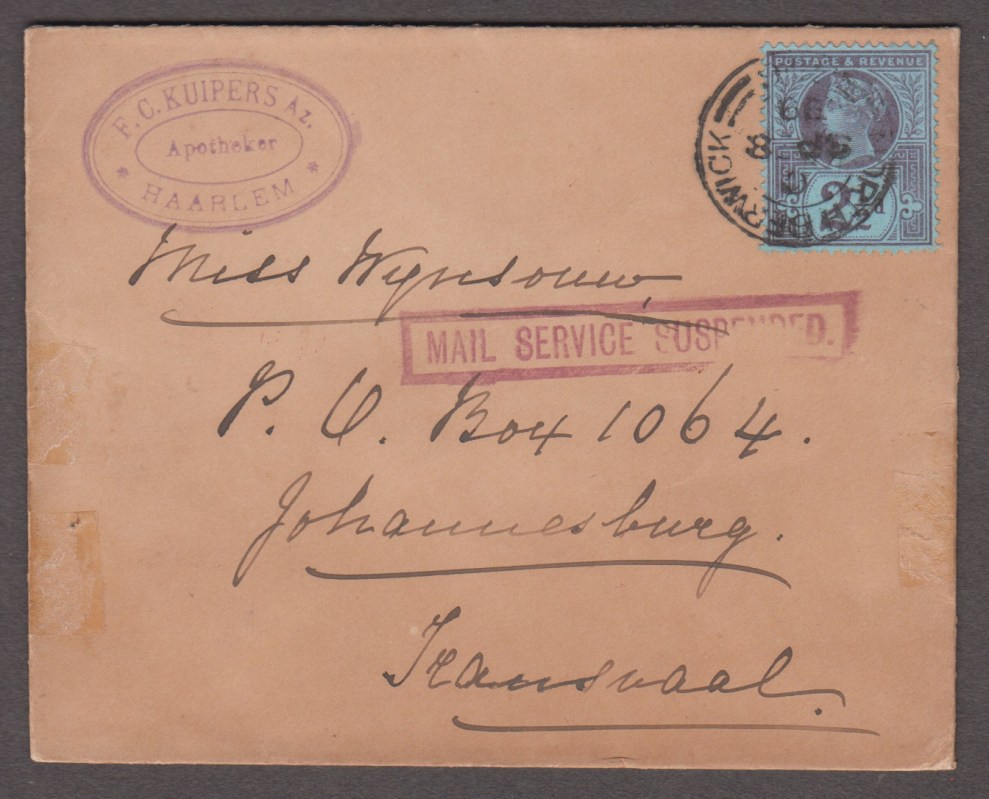 F. C. KUIPERS Az.
Apotheker
* HAARLEM *
POSTAGE & REVENUE
2½d
BERWICK
99
Miss Wynsouw
MAIL SERVICE SUSPENDED.
P. O. Box 1064.
Johannesburg.
Transvaal.